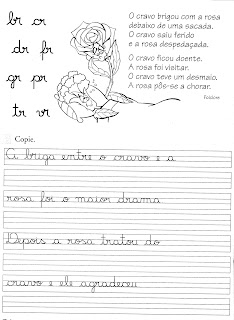 br cr
dr fr
gr pr
tr vr
O cravo brigou com a rosa
debaixo de uma sacada.
O cravo saiu ferido
e a rosa despedaçada.
O cravo ficou doente.
A rosa foi visitar.
O cravo teve um desmaio.
A rosa pôs-se a chorar.
Folclore
Copie.
A briga entre o cravo e a
rosa foi o maior drama
Depois a rosa tratou do
cravo e ele agradeceu